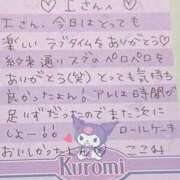 ♡ Iさんへ ♡
Iさん、今日はとっても
楽しいラブタイムをありがとう♡
約束通りステのペロペロを
ありがとう(笑)とっても気持ち
良かったよん！アレは時間が
足いずだったのでまた次に
しよー！！ ロールケーキ
おいしかったよん♡ ここね
Kuromi